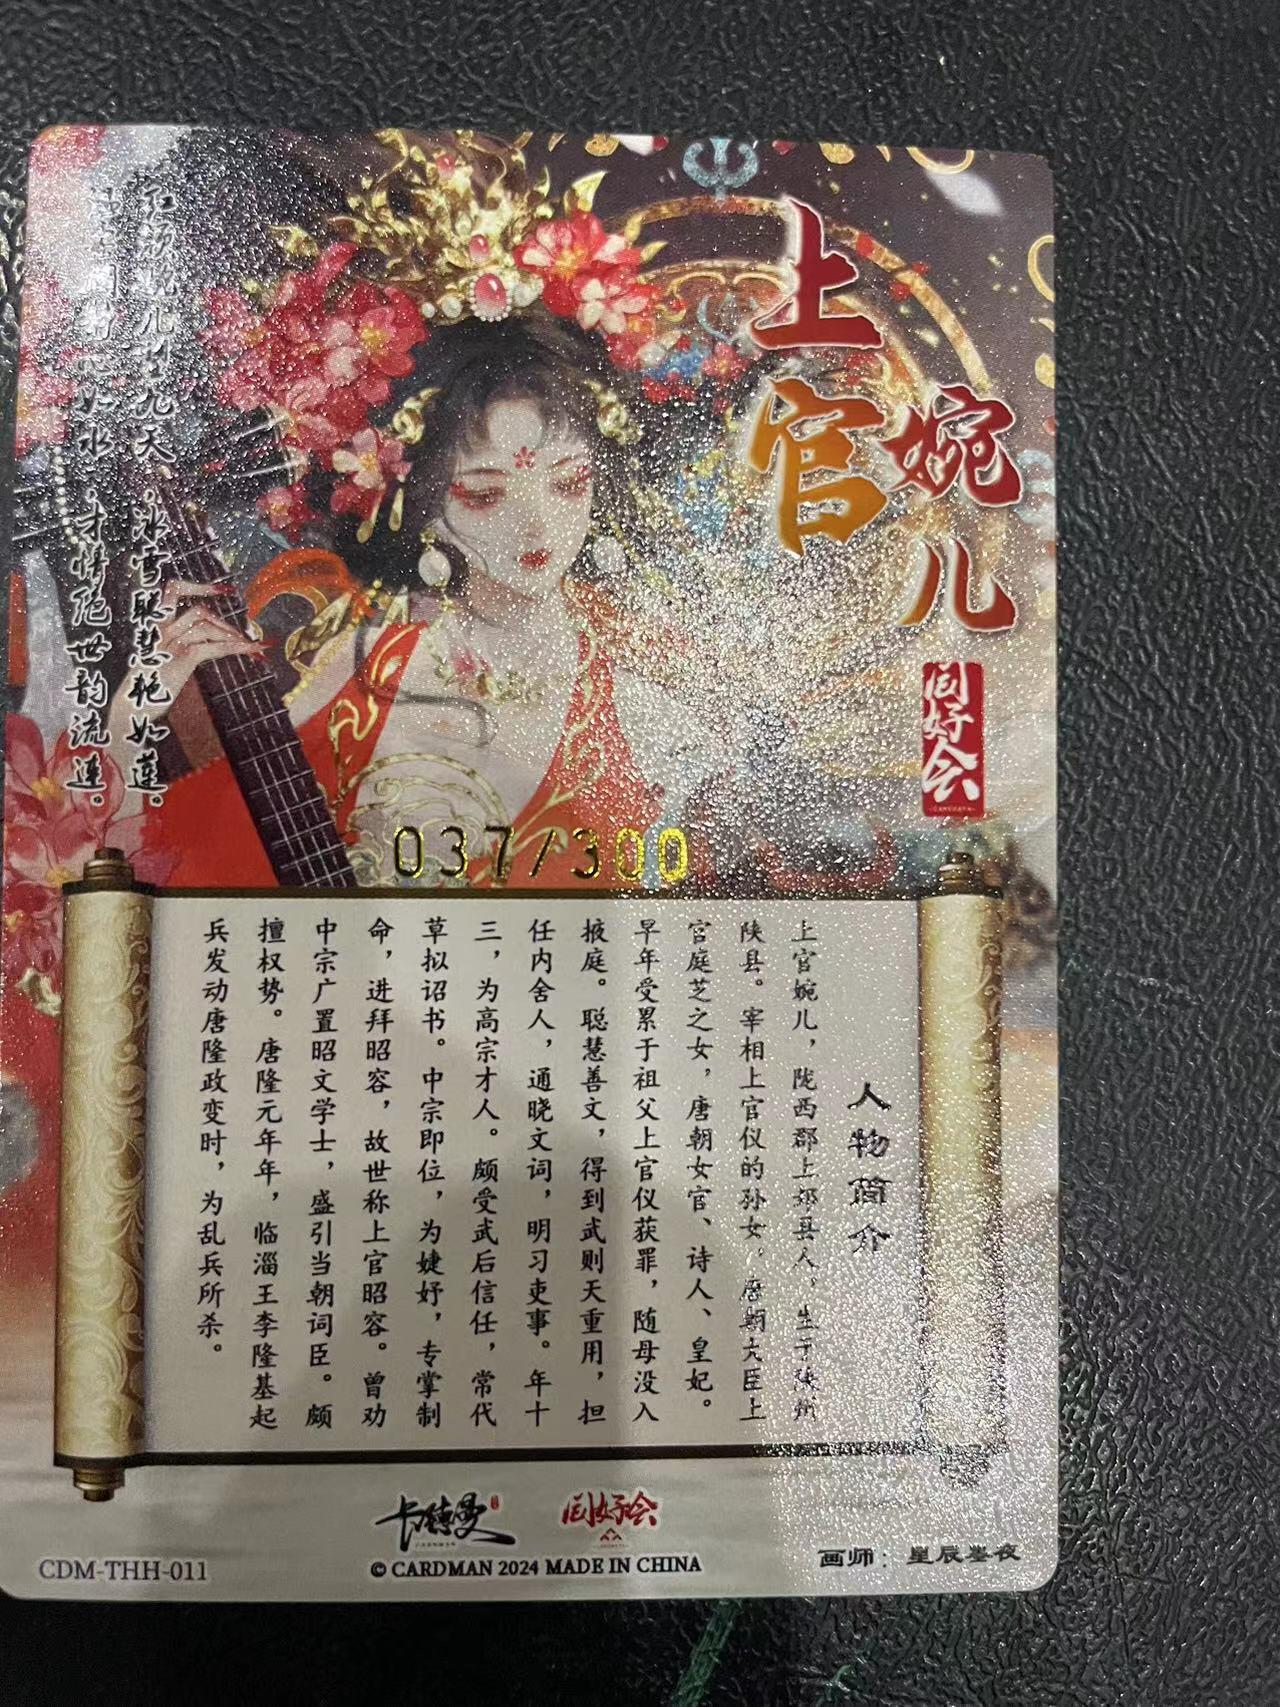 上官
婉儿
同好会
红颜婉儿出九天，冰雪聪慧艳如莲。
水，才情绝世韵流连。
037/300
人物简介
上官婉儿，陇西郡上邽县人，生于陕州
陕县。宰相上官仪的孙女，唐朝大臣上
官庭芝之女，唐朝女官、诗人、皇妃。
早年受累于祖父上官仪获罪，随母没入
掖庭。聪慧善文，得到武则天重用，担
任内舍人，通晓文词，明习吏事。年十
三，为高宗才人。颇受武后信任，常代
草拟诏书。中宗即位，为婕妤，专掌制
命，进拜昭容，故世称上官昭容。曾劝
中宗广置昭文学士，盛引当朝词臣。颇
擅权势。唐隆元年年，临淄王李隆基起
兵发动唐隆政变时，为乱兵所杀。
卡德曼
同好会
CDM-THH-011
© CARDMAN 2024 MADE IN CHINA
画师：星辰墨夜